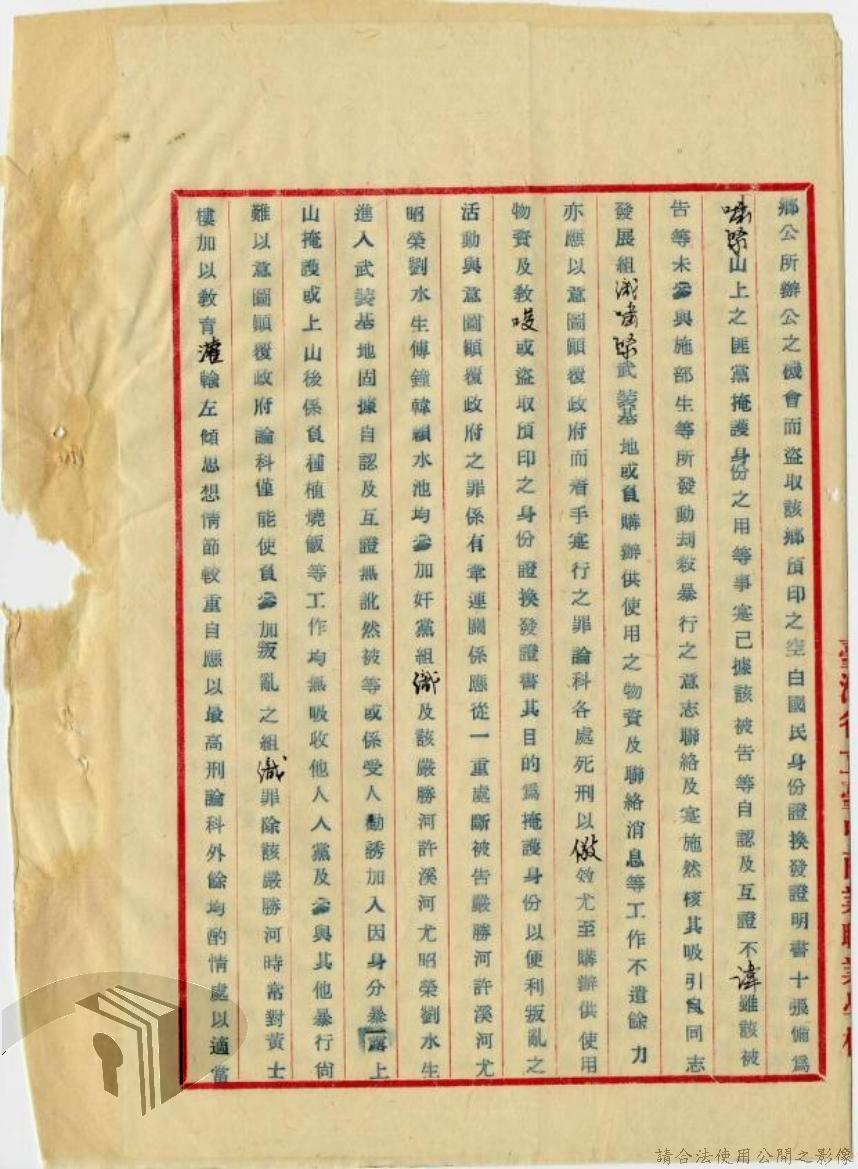 鄉公所辦公之機會而盜取該鄉預印之空白國民身份證換發證明書十張備為
嘯聚山上之匪黨掩護身份之用等事寔已據該被告等自認及互證不諱雖該被
告等未參與施部生等所發動刼殺暴行之意志聯絡及寔施然核其吸引良同志
發展組織嘯聚武裝基地或負購辦供使用之物資及聯絡消息等工作不遺餘力
亦應以意圖顛覆政府而着手寔行之罪論科各處死刑以儆效尤至購辦供使用
物資及教唆或盜取預印之身份證換發證書其目的為掩護身份以便利叛亂之
活動與意圖顛覆政府之罪係有牽連關係應從一重處斷被告嚴勝河許溪河尤
昭榮劉水生傅鐘韓顏水池均參加奸黨組織及該嚴勝河許溪河尤昭榮劉水生
進入武裝基地固據自認及互證無訛然被等或係受人勸誘加入因身分暴露上
山掩護或上山後係負種植燒飯等工作均無吸收他人入黨及參與其他暴行尚
難以意圖顛覆政府論科僅能使負參加叛亂之組織罪除該嚴勝河時常對黃士
樓加以教育灌輸左傾思想情節較重自應以最高刑論科外餘均酌情處以適當
請合法使用公開之影像